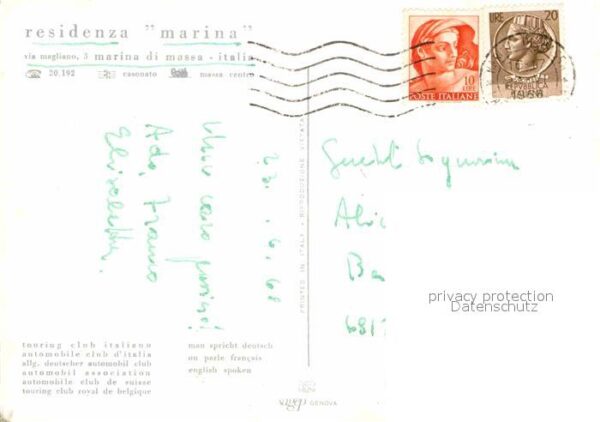 residenza "marina"
via magliano, 3 marina di massa - italia
20.192 casonato massa-centro
10
LIRE
POSTE ITALIANE
LIRE 20
REPUBBLICA
23.6.68
Un caro pensiero!
Ada, Franco
Elisabetta
PRINTED IN ITALY - RIPRODUZIONE VIETATA
Ali
Ba
681
privacy protection
Datenschutz
touring club italiano
automobile club d'italia
allg. deutscher automobil club
automobil association
automobile club de suisse
touring club royal de belgique
man spricht deutsch
on parle français
english spoken
GENOVA